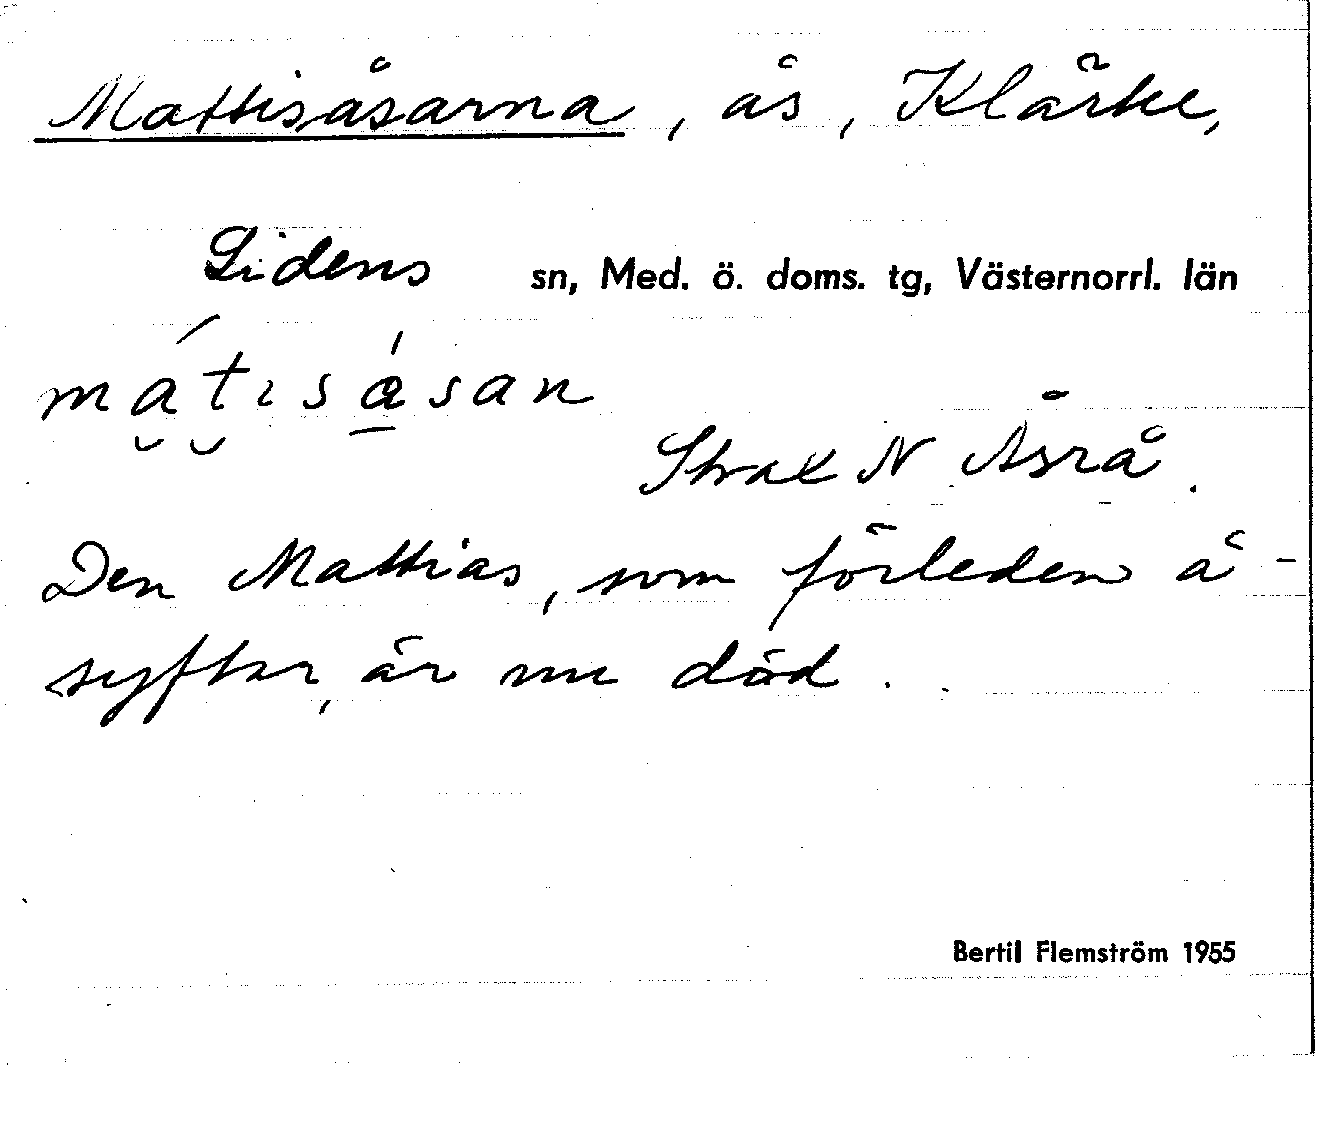 Mattisåsarna, ås, Klärke,
Lidens sn, Med. ö. doms. tg, Västernorrl. län
mátɩsåsan
Strax N Åsrå.
Den Mattias, som förleden å-
syftar, är nu död.
Bertil Flemström 1955